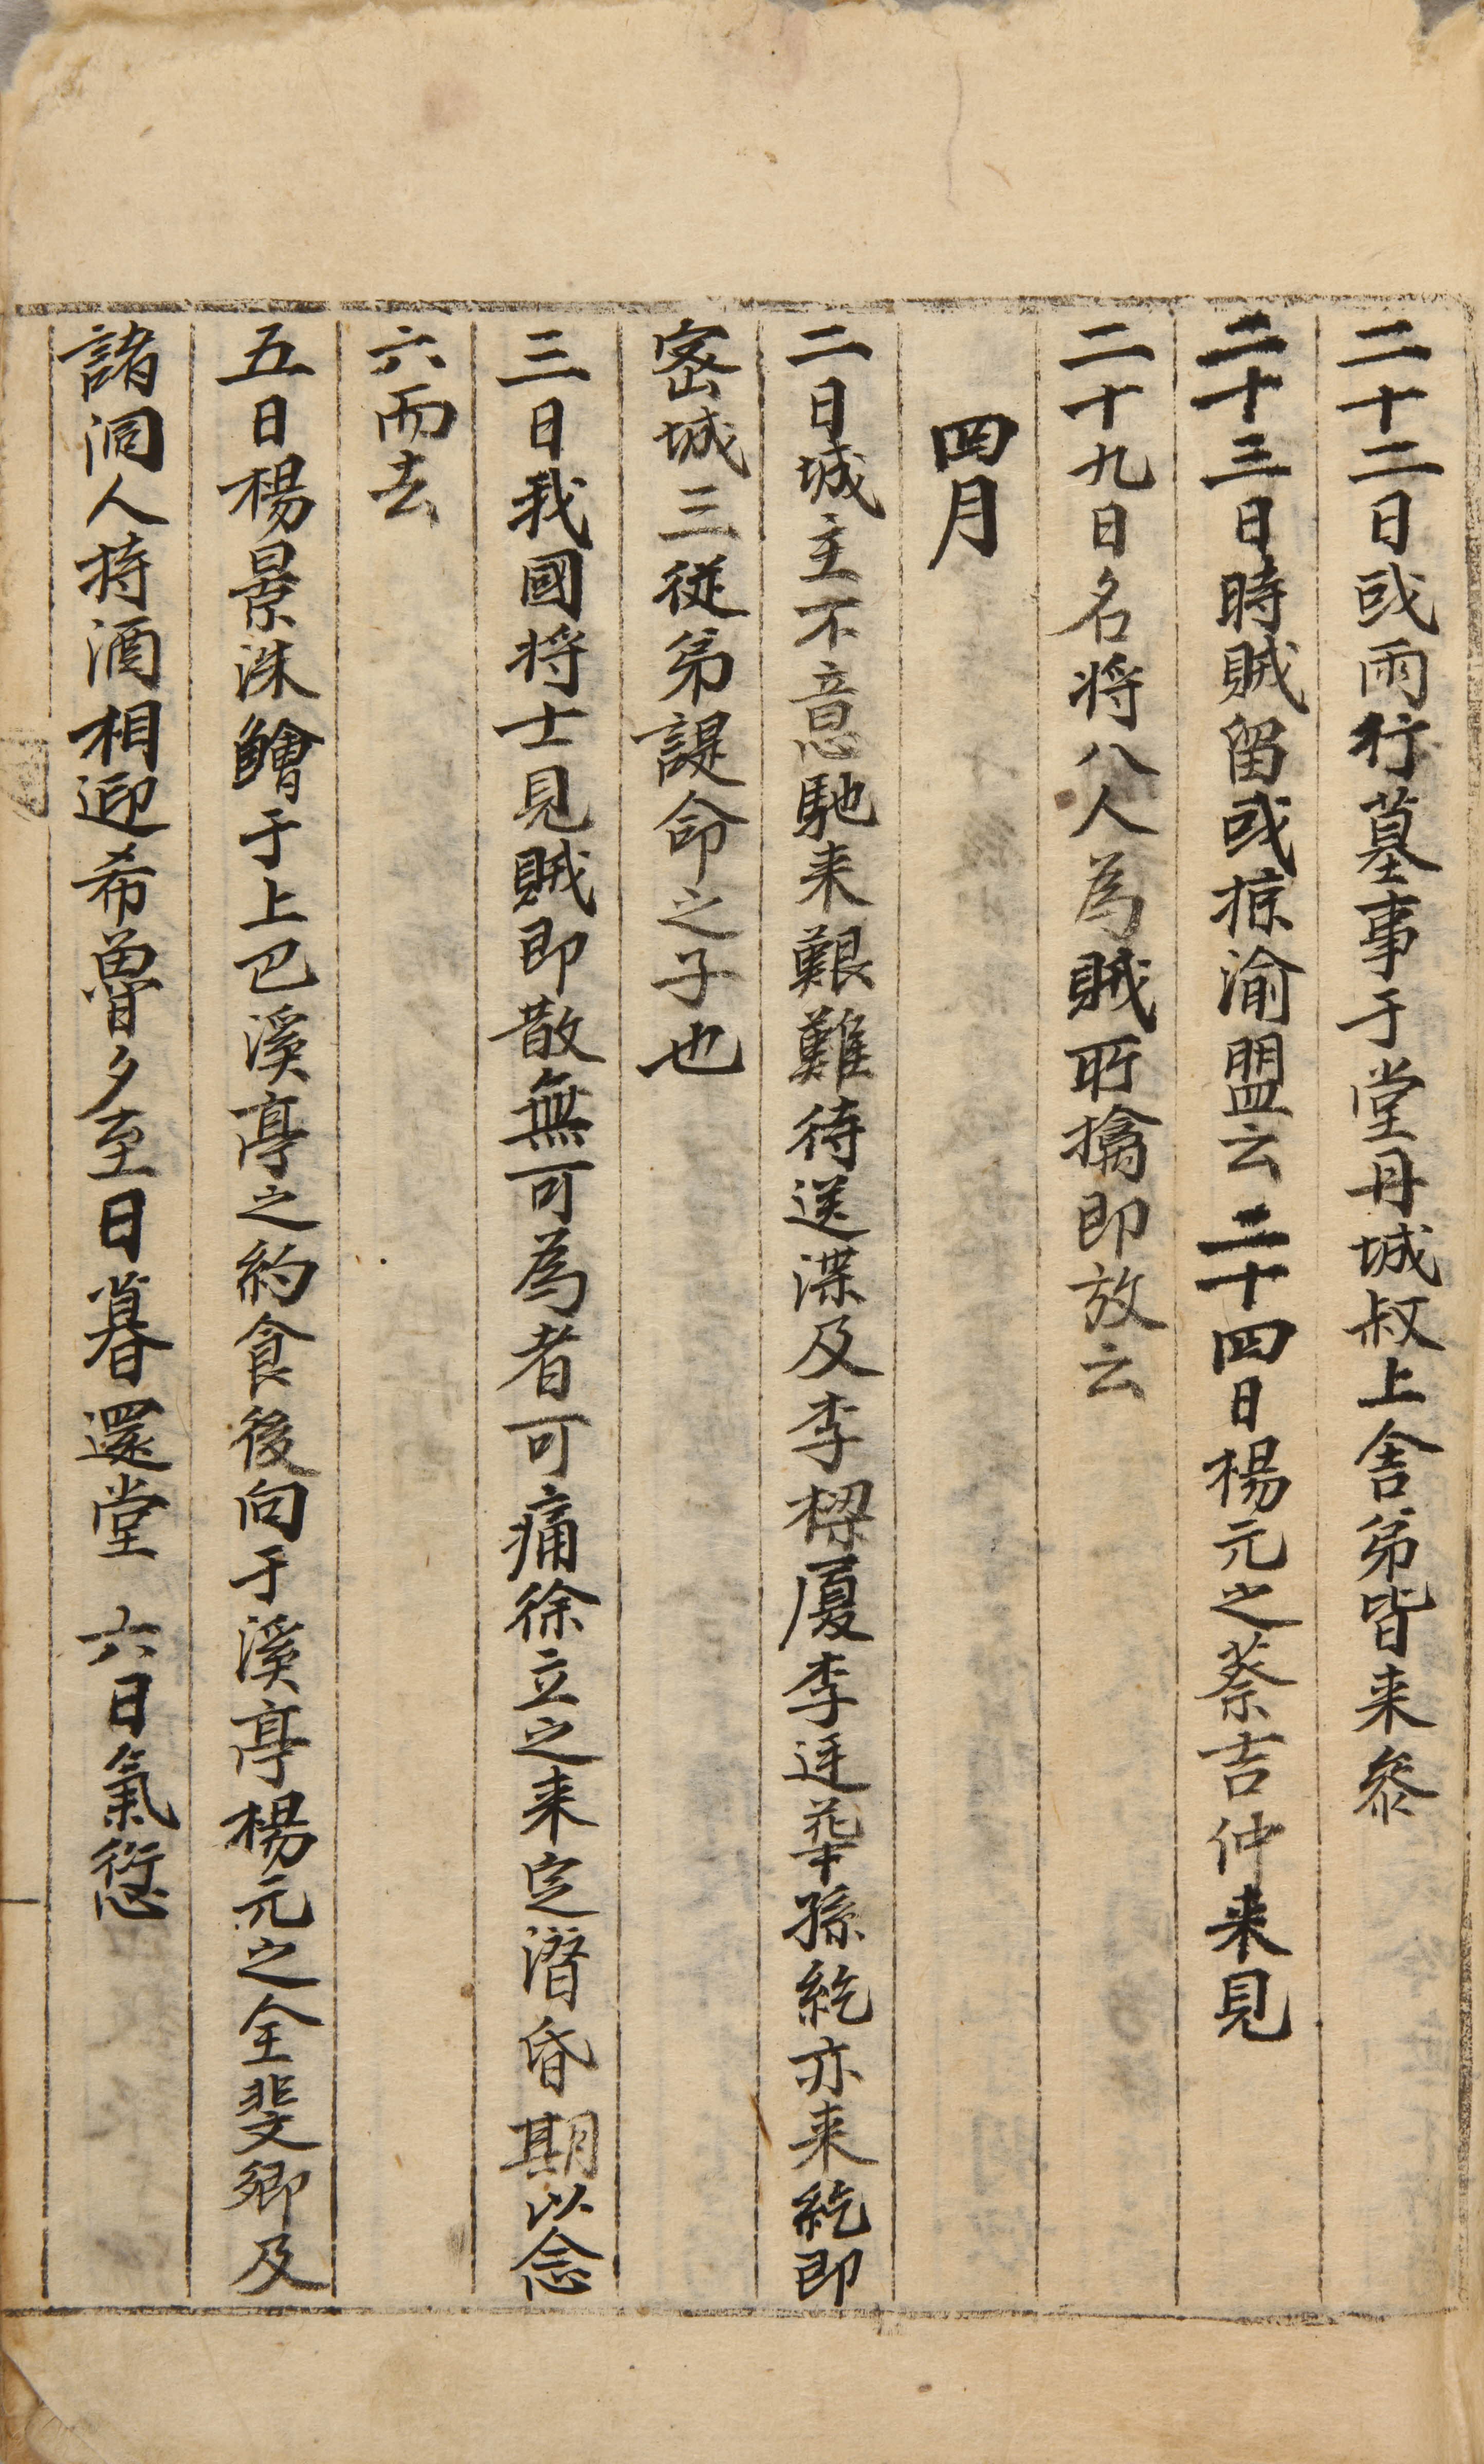 二十二日或雨行墓事于堂丹城叔上舍弟皆来參
二十三日時賊留或掠渝盟云 二十四日楊元之蔡吉仲来見
二十九日名将八人為賊所擒即放云
四月
二日城主不意馳来艱難待送渫及李樑厦李廷華孫紇亦来紇即
密城三從弟諟命之子也
三日我國将士見賊即散無可為者可痛徐立之来定潛昏期以念
六而去
五日楊景洙鱠于上巴溪亭之約食後向于溪亭楊元之全斐卿及
諸洞人持酒相迎希魯夕至日暮還堂 六日氣愆